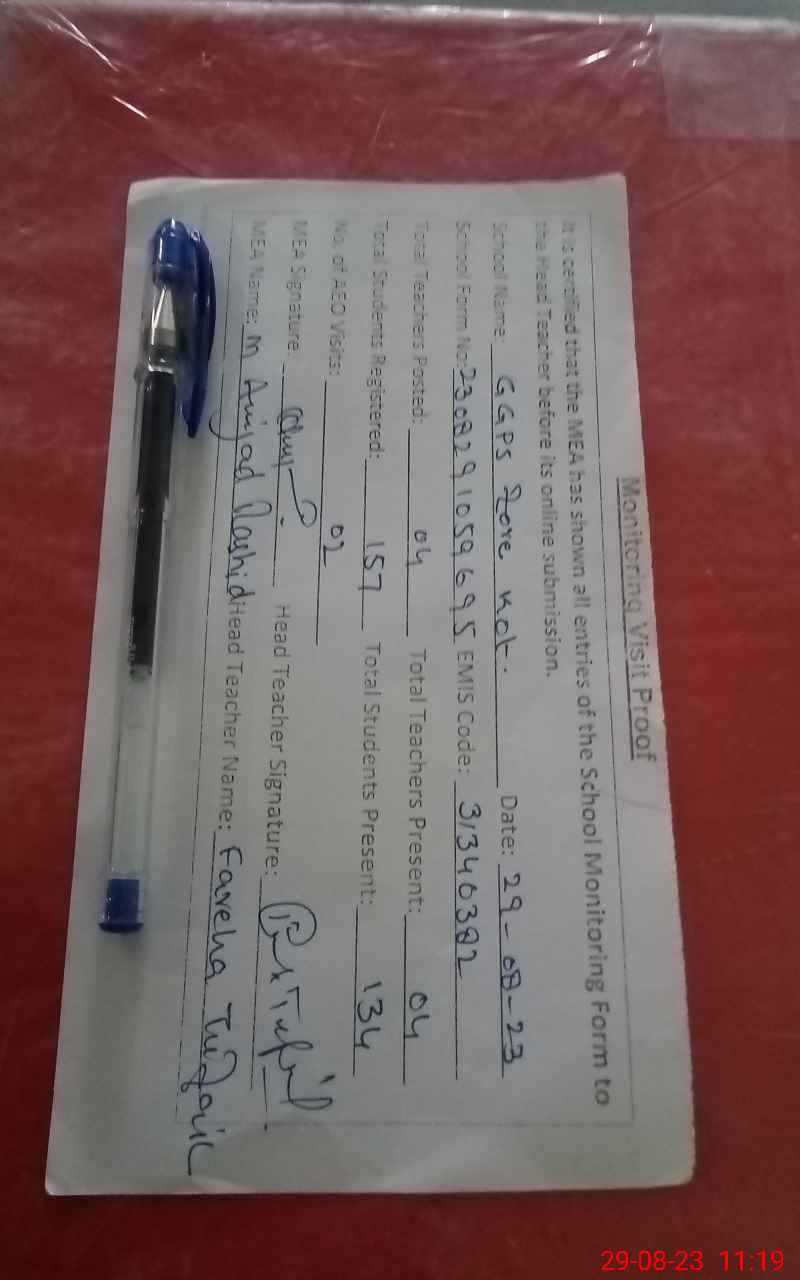 Monitoring Visit Proof
It is certified that the MEA has shown all entries of the School Monitoring Form to
the Head Teacher before its online submission.
School Name: GGPS Kot. Date: 29-08-23
School Form No: 2308291059695 EMIS Code: 31340382
Total Teachers Posted: 04 Total Teachers Present: 04
Total Students Registered: 157 Total Students Present: 134
No. of AEO Visits: 02
MEA Signature: Head Teacher Signature:
MEA Name: M Amjad Rashid Head Teacher Name: Fareha
29-08-23 11:19